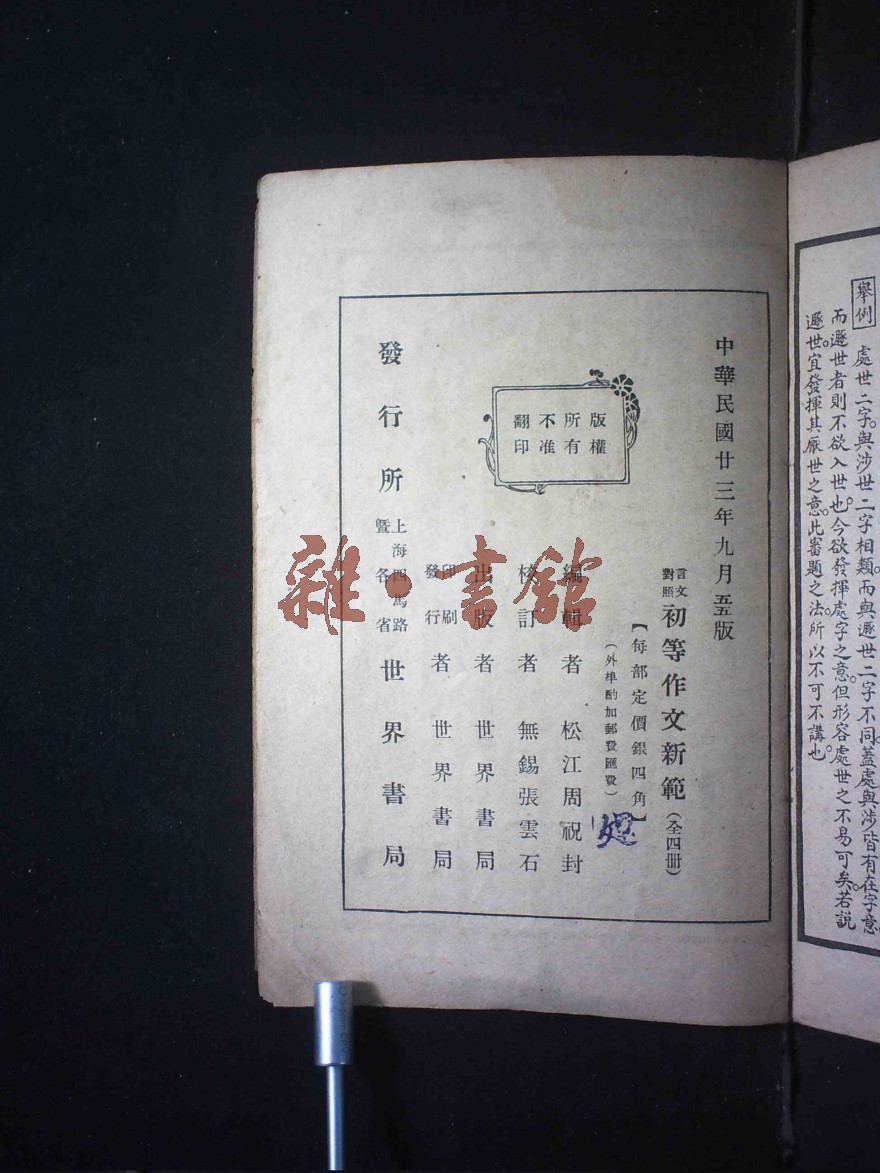 舉例 處世二字。與涉世二字相類。而與遯世二字不同。蓋處與涉皆有在字意。
而遯世者則不欲入世也。今欲發揮處字之意。但形容處世之不易可矣。若說
遯世。宜發揮其厭世之意。此審題之法所以不可不講也。
中華民國廿三年九月五版
言文對照 初等作文新範(全四册)
【每部定價銀四角】
(外埠酌加郵費匯費)
版權
所有
不准
翻印
編輯者 松江周祝封
校訂者 無錫張雲石
出版者 世界書局
印刷發行者 世界書局
發行所 上海四馬路暨各省 世界書局
雜·書館